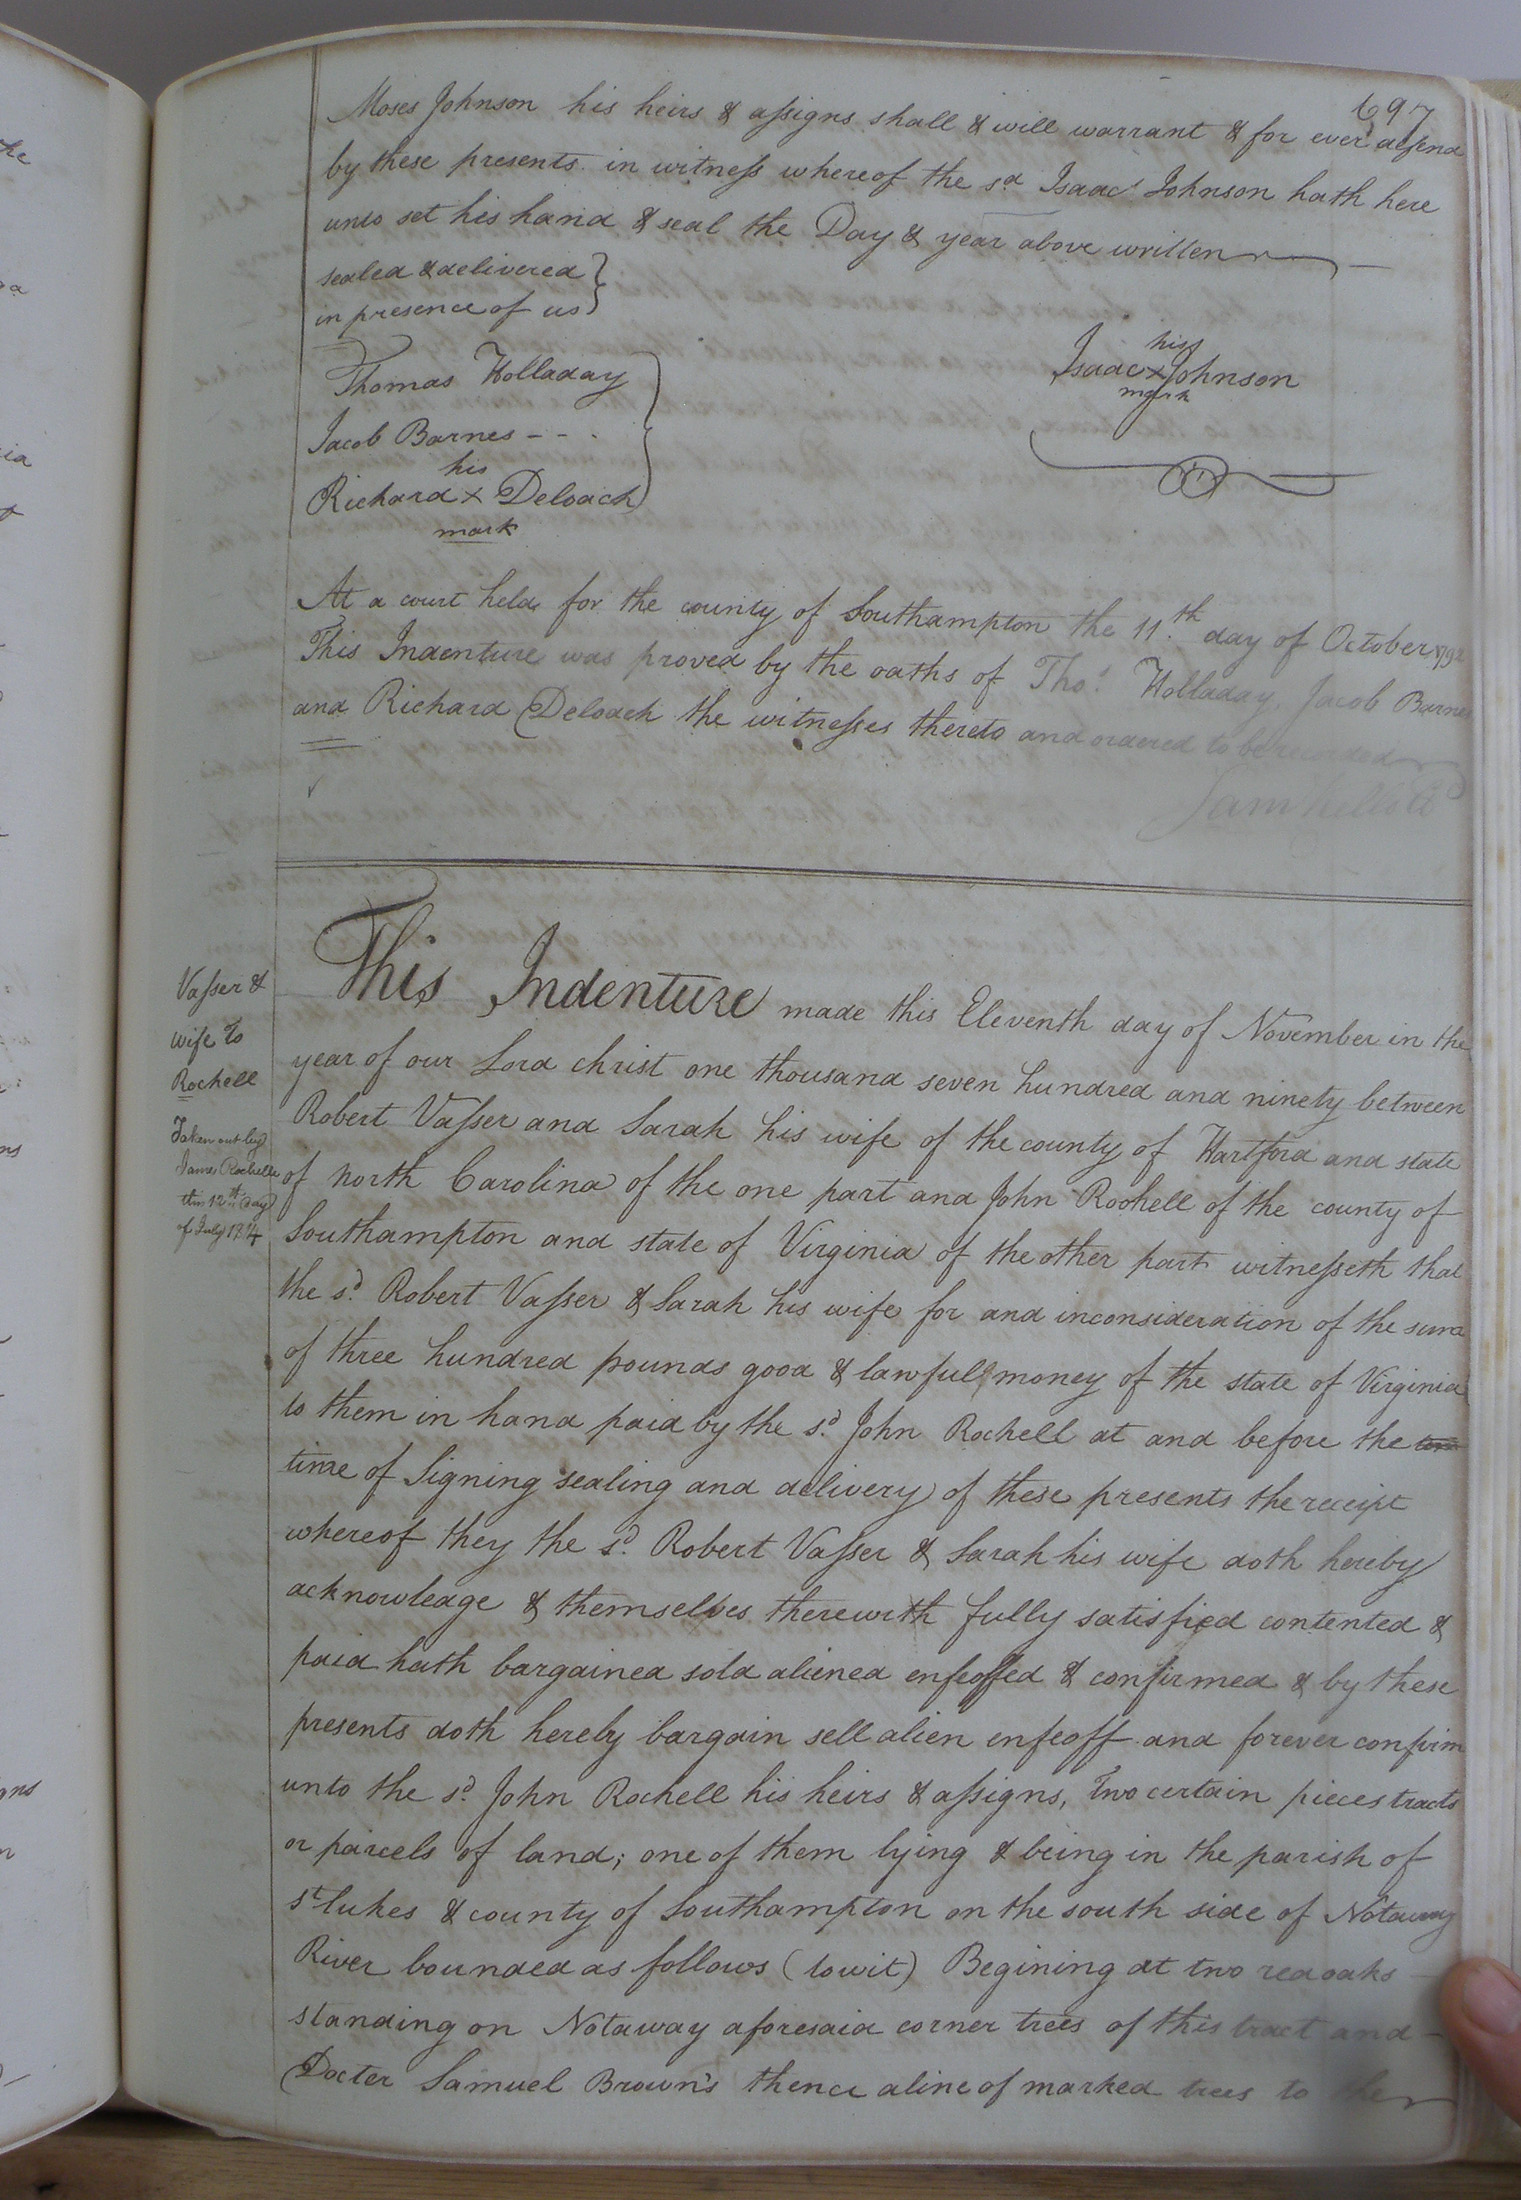 697
Moses Johnson his heirs & assigns shall & will warrant & for ever defend
by these presents in witness whereof the sd Isaac Johnson hath here
unto set his hand & seal the Day & year above written
sealed & delivered
in presence of us
Thomas Holladay
Jacob Barnes - - .
his
Richard x Deloach
mark
his
Isaac x Johnson
mark
At a court held for the county of Southampton the 11.th day of October 1792
This Indenture was proved by the oaths of Tho.s Holladay, Jacob Barnes
and Richard Deloach the witnesses thereto and ordered to be recorded
Sam Kello
Vasser &
wife to
Rochell
Taken out by
James Rochelle
this 12th Day
of July
This Indenture made this Eleventh day of November in the
year of our Lord christ one thousand seven hundred and ninety between
Robert Vasser and Sarah his wife of the county of Hartford and state
of north Carolina of the one part and John Rochell of the county of
Southampton and state of Virginia of the other part witnesseth that
the sd. Robert Vasser & Sarah his wife for and inconsideration of the sum
of three hundred pounds good & lawfull money of the state of Virginia
to them in hand paid by the sd. John Rochell at and before the
time of Signing sealing and delivery of these presents the receipt
whereof they the sd. Robert Vasser & Sarah his wife doth hereby
acknowledge & themselves therewith fully satisfied contented &
paid hath bargained sold aliened enfeoffed & confirmed & by these
presents doth hereby bargain sell alien enfeoff and forever confirm
unto the sd. John Rochell his heirs & assigns, two certain pieces tracts
or parcels of land; one of them lying & being in the parish of
st lukes & county of Southampton on the south side of Notaway
River bounded as follows (towit) Begining at two red oaks
standing on Notaway aforesaid corner trees of this tract and
Docter Samuel Brown's thence a line of marked trees to the